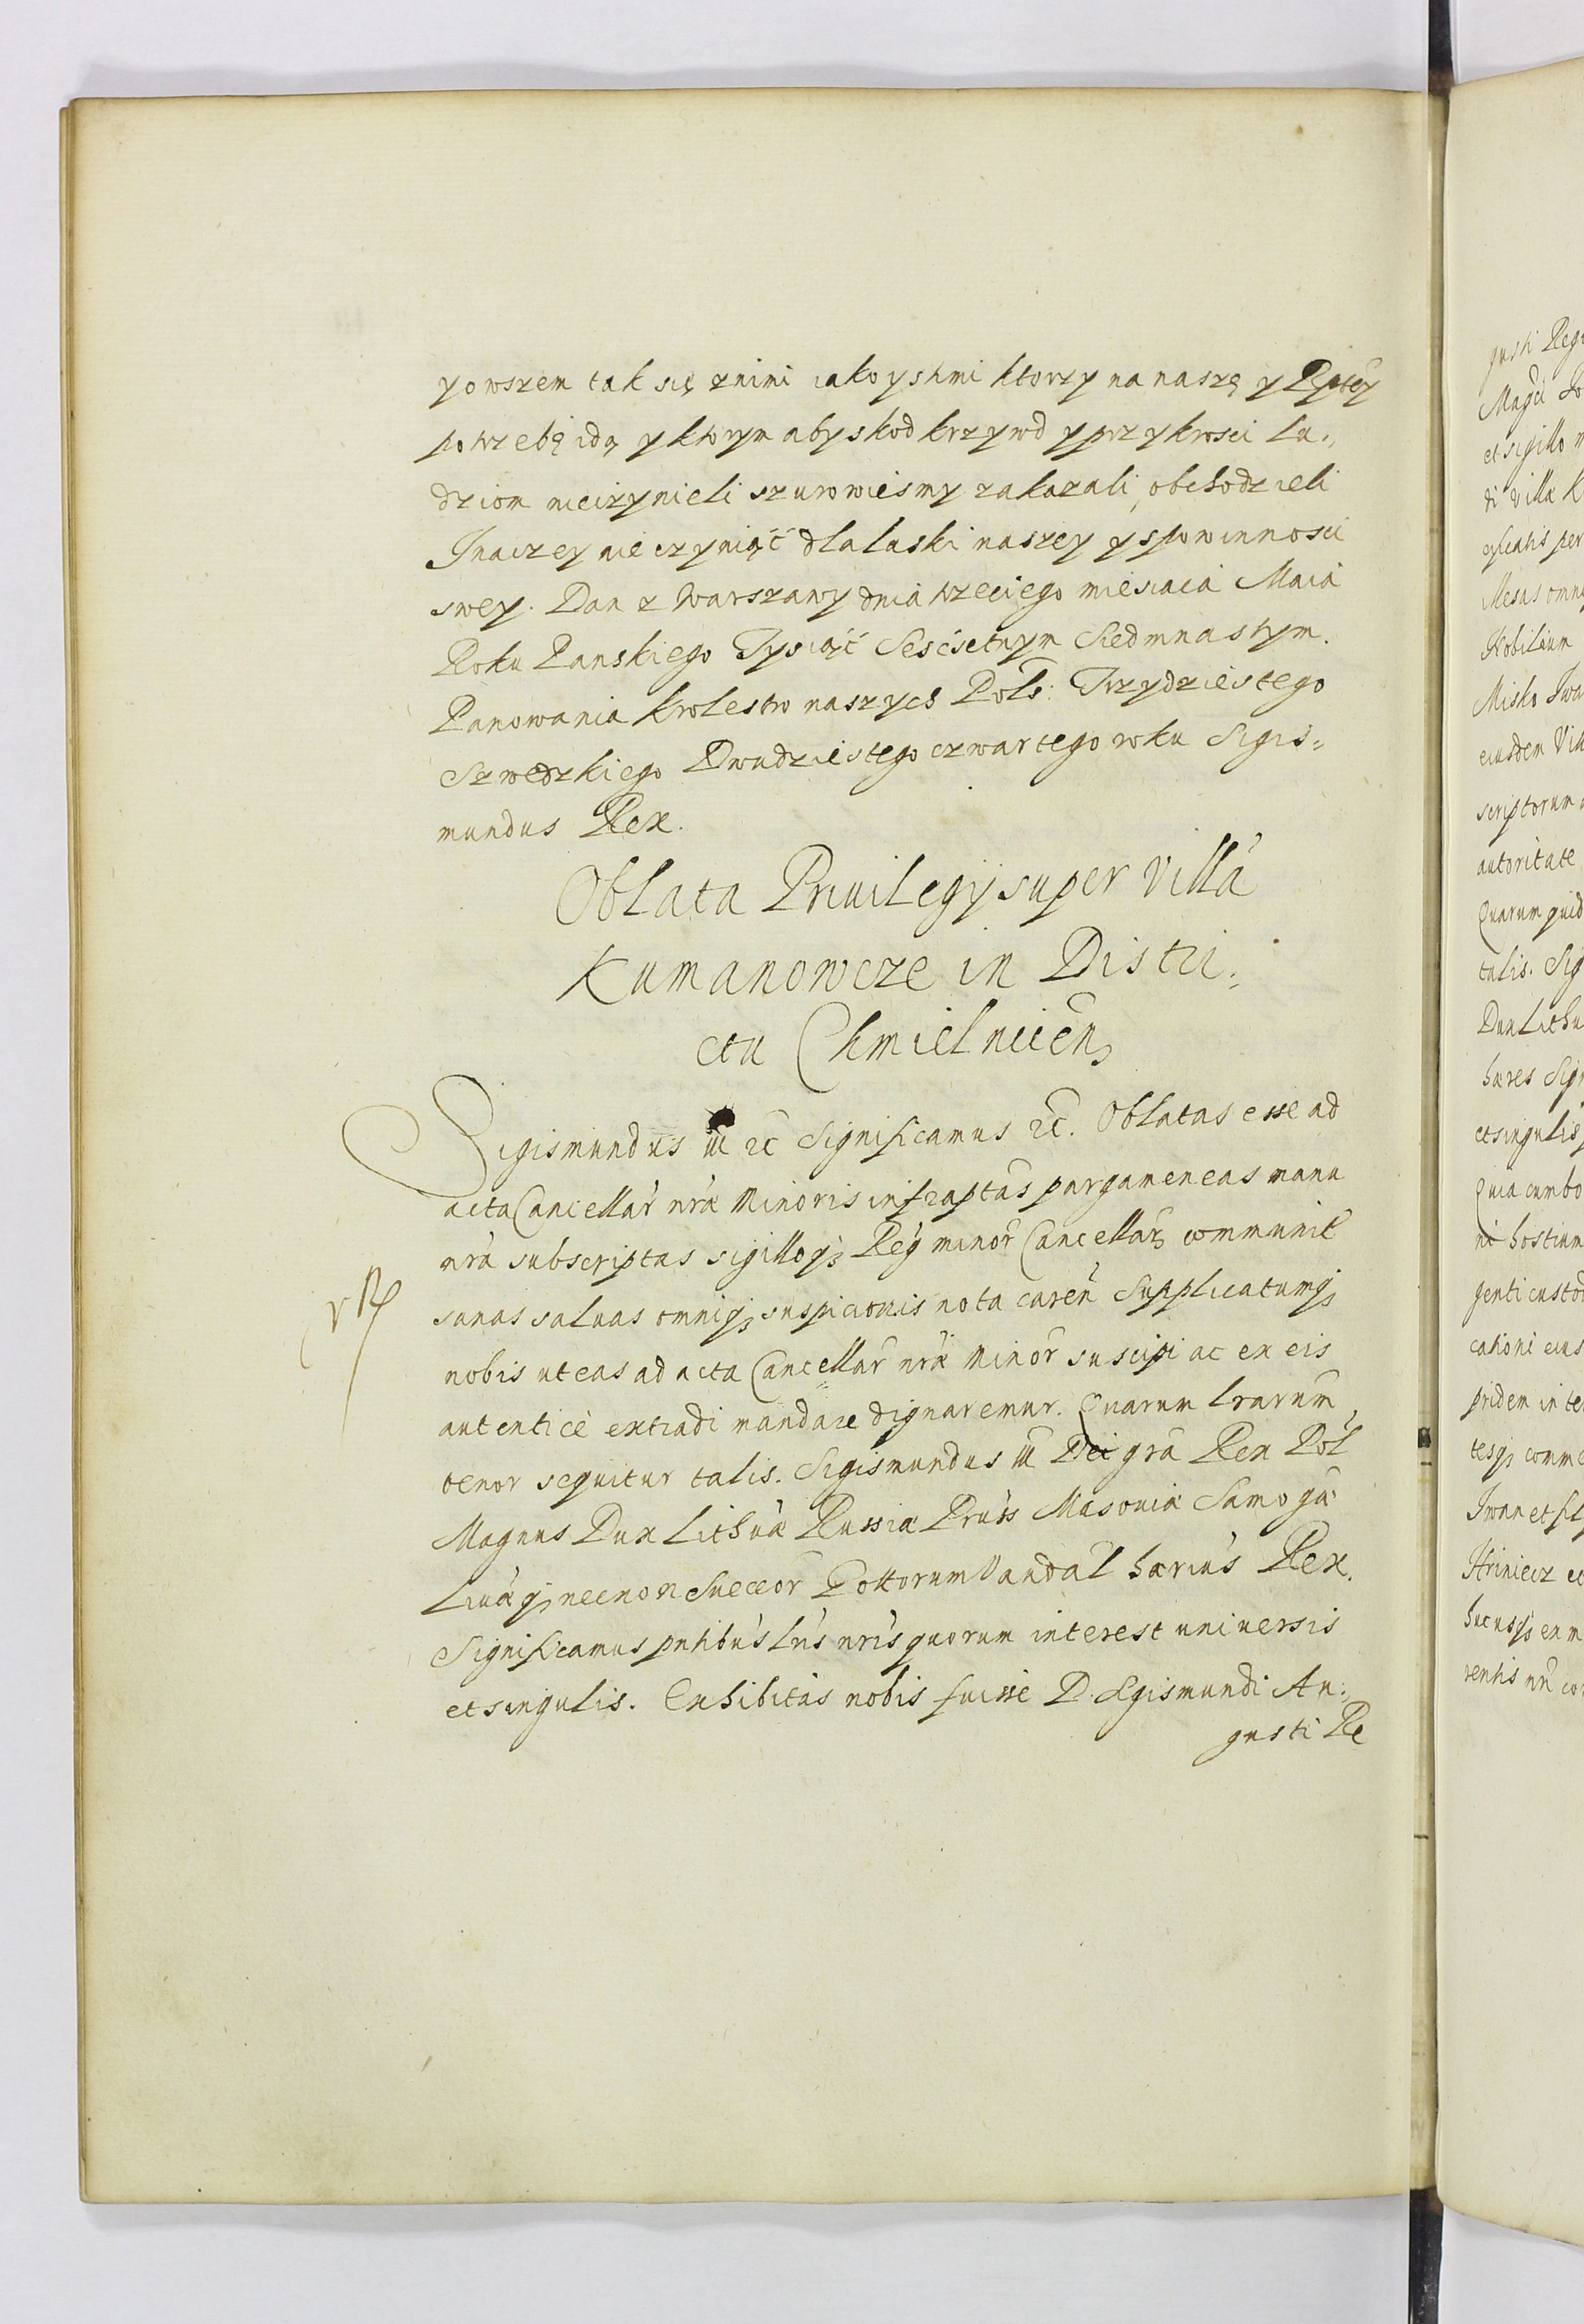 y owszem tak się z nimi iako y s tmi ktorzy na naszę y Rptey
potrzebę idą y ktorym aby skod krzywd y przykrosci lu„
dziom nieczynieli szurowiesmy zakazali, obchodzieli
Inaczey nie czyniąć dla laski naszey y s powinnosci
swey. Dan z Warszawy dnia trzeciego miesiaca Maia
Roku Panskiego Tysiąć Sescsetnym Siedmnastym.
Panowania Krolestw naszych Pols: Trzydziestego
Szwedzkiego Dwudziestego czwartego roku Sigis„
mundus Rex.
Oblata Priuilegij super Villa
Kumanowcze in Distri„
ctu Chmielnicen̄
Sigismundus III ꝛc̄ Significamus ꝛc̄. Oblatas esse ad
acta Cancellar̄ nr̄æ Minoris infraptas pargameneas manu
nr̄a subscriptas sigilloqꝫ Reḡ minor̄ Cancellar̄ communit̄
sanas saluas omniqꝫ suspicionis nota caren̄ Supplicatumqꝫ
nobis ut eas ad acta Cancellar̄ nr̄æ Minor̄ suscipi ac ex eis
autenticè extradi mandare dignaremur. Quarum lr̄arum
tenor sequitur talis. Sigismundus III Dei gr̄a Rex Pol̄
Magnus Dux Lithūæ Russiæ Prūss Masouiæ Samoḡiæ
Liuāæqꝫ necnon Sueccor̄ Gottorum Vandal̄ hærius Rex.
Significamus pn̄tibus lr̄is nr̄is quorum interest uniuersis
et singulis. Exhibitas nobis fuisse D. Sigismundi Au„
gusti Re